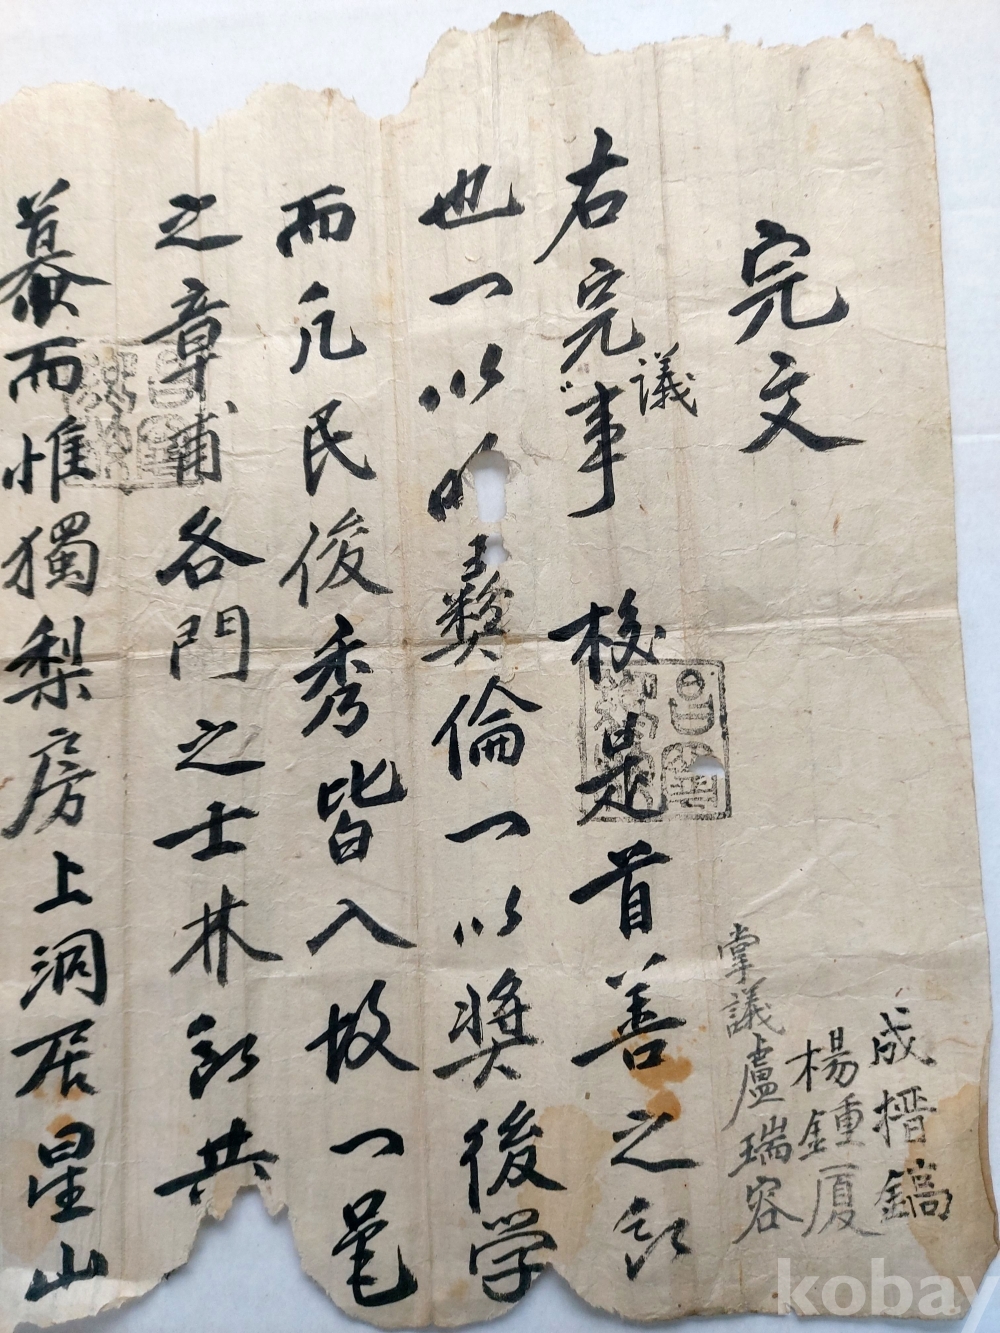 完文
成榗鎬
楊鍾厦
掌議盧瑞容
右完議事 校是首善之所
也一以明彛倫一以奬後学
而凡民俊秀皆入故一邑
之章甫各門之士林所共
慕而惟獨梨房上洞居星山
kobay